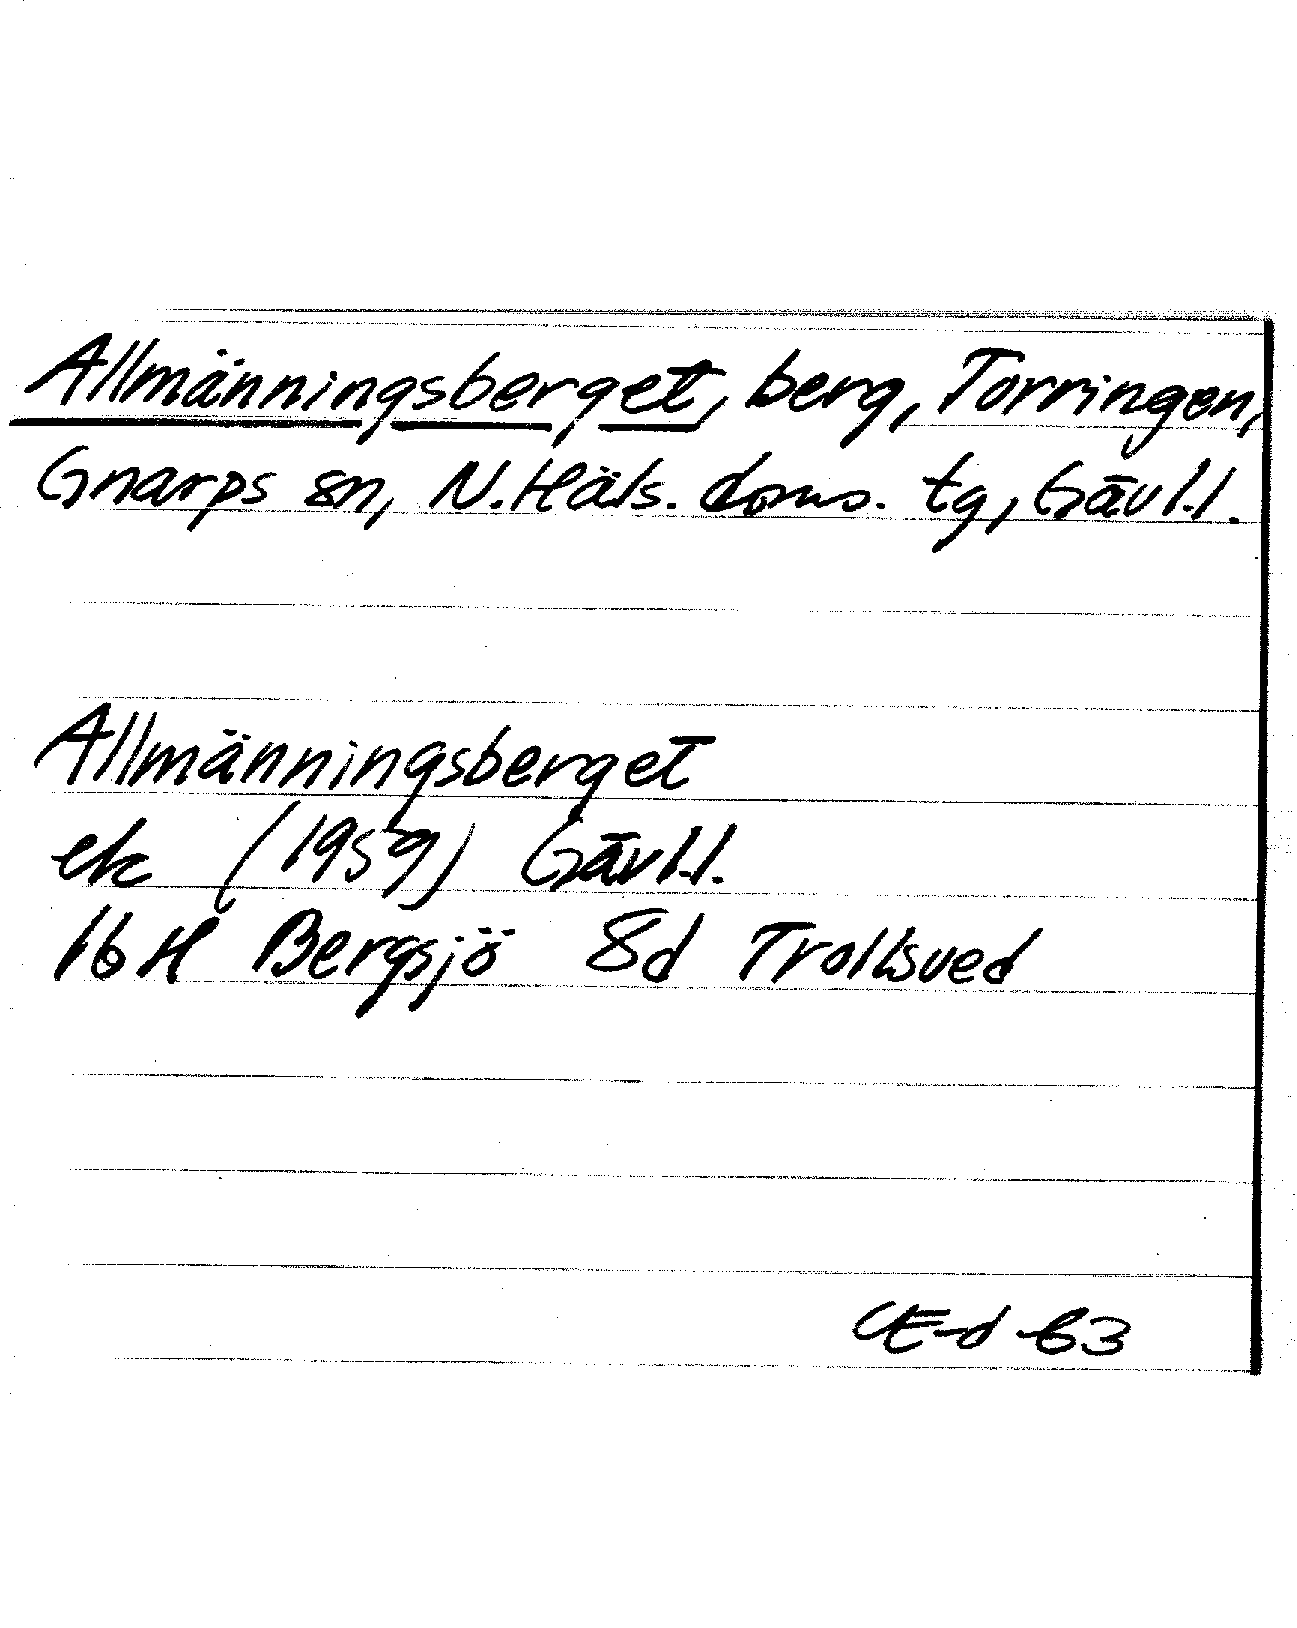 Allmänningsberget, berg, Torringen,
Gnarps sn, N. Häls. doms. tg, Gävl.l.
Allmänningsberget
ek (1959) Gävl.l.
16H Bergsjö 8d Trollsved
CE-d -63